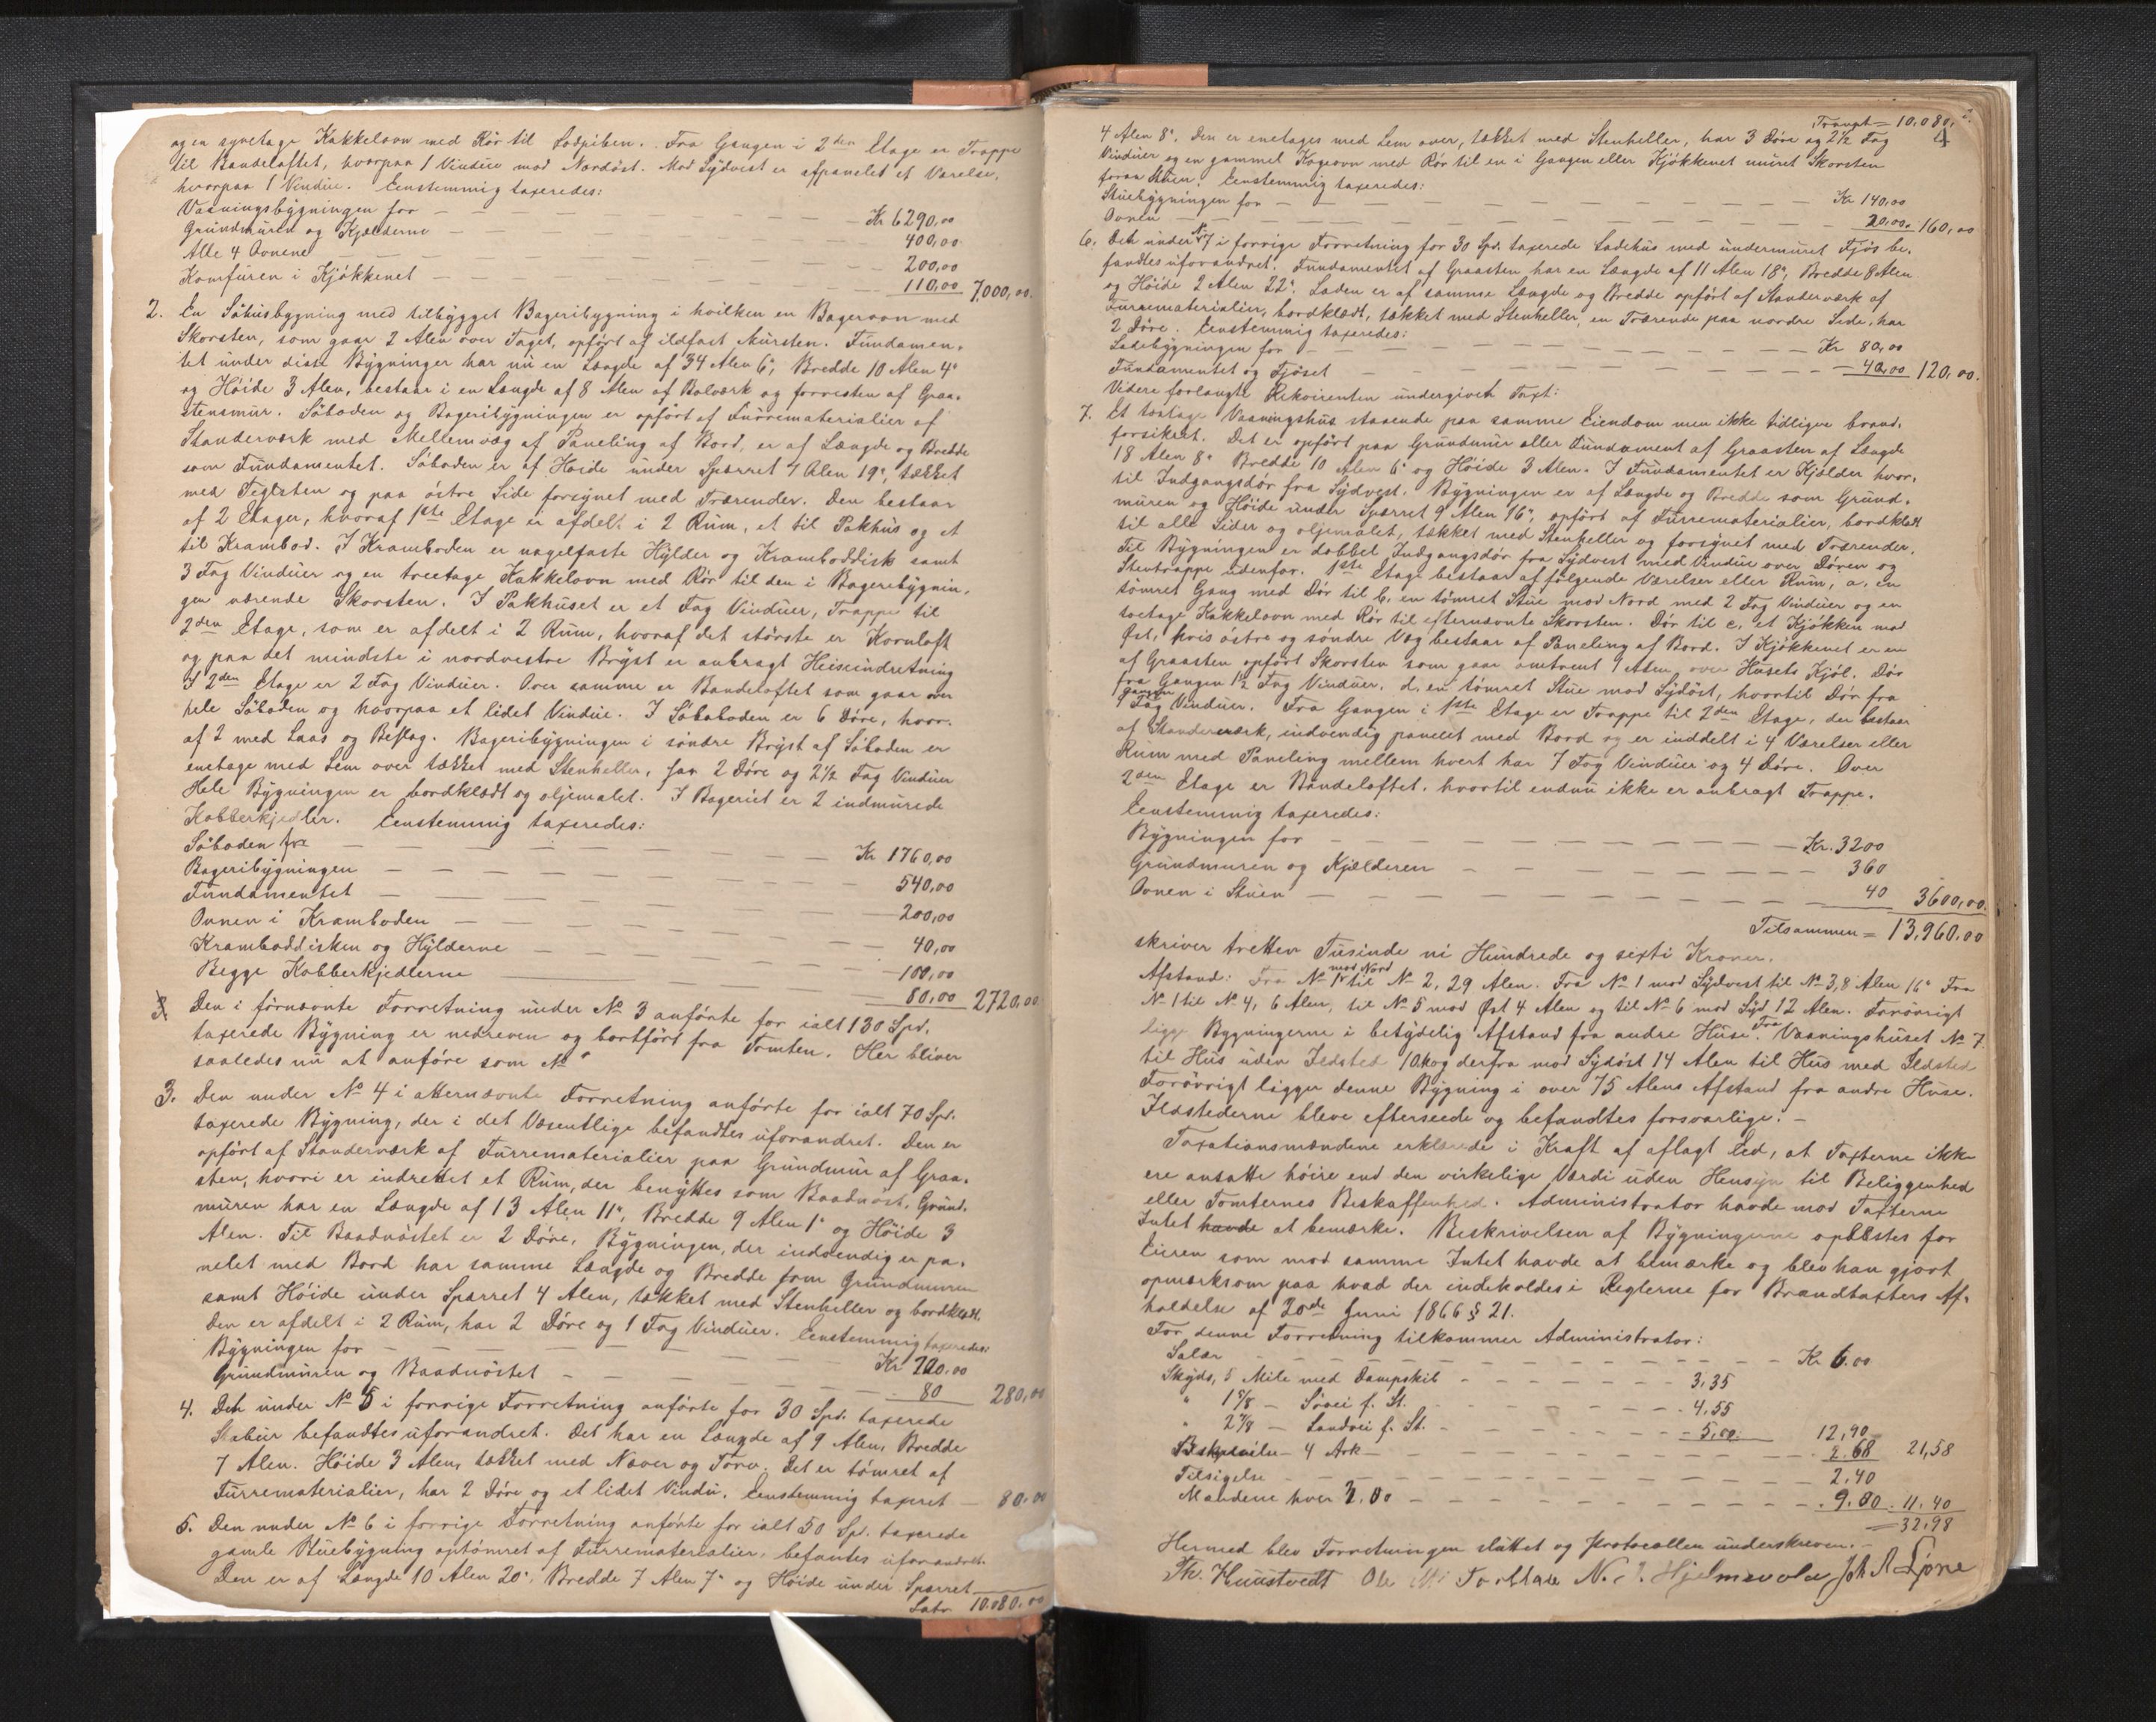 og en syvetage Kakkelovn med Rör til Lodpiben. Fra Gangen i 2den Etage er Trappe
til Bandeloftet, hvorpaa 1 Vindue mod Nordöst. Mod Sydvest er afpanelet et Værelse,
hvorpaa 1 Vindue. Eenstemmig taxeredes:
Vaaningsbygningen for — — — Kr 6290,00
Grundmuren og Kjælderne — — — 400,00
Alle 4 Ovnene — — — 200,00
Komfuren i Kjökkenet — — — 110,00 7,000,00.
2. En Söhusbygning med tilbygget Bageribygning i hvilken en Bagerovn med
Skorsten, som gaar 2 Alen over Taget, opfört af ildfast Mursten. Fundamen-
tet under disse Bygninger har nu en Længde af 34 Alen 6", Bredde 10 Alen 4"
og Höide 3 Alen, bestaar i en Længde af 8 Alen af Bolværk og forresten af Graa-
stensmur. Söboden og Bageribygningen er opfört af Furrematerialier af
Standerværk med Mellemvæg af Paneling af Bord, er af Længde og Bredde
som Fundamentet. Söboden er af Höide under Sparret 7 Alen 19", tækket
med Teglsten og paa östre Side forsynet med Trærender. Den bestaar
af 2 Etager, hvoraf 1ste Etage er afdelt i 2 Rum, et til Pakhus og et
til Krambod. I Kramboden er nagelfaste Hylder og Kramboddisk samt
3 Fag Vinduer og en treetage Kakkelovn med Rör til den i Bageribygnin-
gen værende Skorsten. I Pakhuset er et Fag Vinduer, Trappe til
2den Etage, som er afdelt i 2 Rum, hvoraf det störste er Kornloft
og paa det mindste i nordvestre Bryst er anbragt Heiseindretning
I 2den Etage er 2 Fag Vinduer. Over samme er Bandeloftet som gaar over
hele Söboden og hvorpaa et lidet Vindue. I Söboden er 6 Döre, hvor-
af 2 med Laas og Beslag. Bageribygningen i söndre Bryst af Söboden er
enetage med Lem over tækket med Stenheller, har 2 Döre og 2½ Fag Vinduer
Hele Bygningen er bordklædt og oljemalet. I Bageriet er 2 indmurede
Kobberkjedler. Eenstemmig taxeredes:
Söboden for — — — Kr 1760,00
Bageribygningen — — — 540,00
Fundamentet — — — 200,00
Ovnen i Kramboden — — — 40,00
Kramboddisken og Hylderne — — — 100,00
Begge Kobberkjedlerne — — — 80,00 2720,00
3 Den i förnævnte Forretning under No 3 anförte for ialt 130 Spd.
taxerede Bygning er nedreven og bortfört fra Tomten. Her bliver
saaledes nu at anföre som No
3. Den under No 4 i efternævnte Forretning anförte for ialt 70 Spd.
taxerede Bygning, der i det Væsentlige befandtes uforandret. Den er
opfört af Standerværk af Furrematerialier paa Grundmur af Graa-
sten, hvori er indrettet et Rum, der benyttes som Baadnöst. Grund-
muren har en Længde af 13 Alen 11", Bredde 9 Alen 1" og Höide 3
Alen. Til Baadnöstet er 2 Döre, Bygningen, der indvendig er pa-
nelet med Bord har samme Længde og Bredde som Grundmuren
samt Höide under Sparret 4 Alen, tækket med Stenheller og bordklædt.
Den er afdelt i 2 Rum, har 2 Döre og 1 Fag Vinduer. Eenstemmig taxeredes:
Bygningen for — — — Kr 200,00
Grundmuren og Baadnöstet — — — 80 280,00
4. Det under No 5 i forrige Forretning anförte for 30 Spd. taxerede
Stabur befandtes uforandret. Det har en Længde af 9 Alen, Bredde
7 Alen. Höide 3 Alen, tækket med Næver og Torv. Det er tömret af
Furrematerialier, har 2 Döre og et lidet Vindu. Eenstemmig taxeret — 80,00
5. Den under No 6 i forrige Forretning anförte for ialt 50 Spd. taxerede
gamle Stuebygning optömret af Furrematerialier, befantes uforandret.
Den er af Længde 10 Alen 20", Bredde 7 Alen 7" og Höide under Sparret
Latr. 10.080.00
Transpt = 10,080,
4
4 Alen 8". Den er enetages med Lem over, tækket med Stenheller, har 3 Döre og 2½ Fag
Vinduer og en gammel Kogeovn med Rör til en i Gangen eller Kjökkenet muret Skorsten
foran Stuen. Eenstemmig taxeredes:
Stuebygningen for — — — Kr 140,00
Ovnen — — — 20,00. 160,00
6. Det under No 7 i forrige Forretning for 30 Spd. taxerede Ladehus med undermuret Fjös be-
fandtes uforandret. Fundamentet af Graasten har en Længde af 11 Alen 18", Bredde 8 Alen
og Höide 2 Alen 22". Laden er af samme Længde og Bredde opfört af Standerværk af
Furrematerialier, bordklædt, tækket med Stenheller, en Trærende paa nordre Side, har
2 Döre. Eenstemmig taxeredes:
Ladebygningen for — — — Kr 80,00
Fundamentet og Fjöset — — — 40,00 120,00.
Videre forlangte Rekvirenten undergivet Taxt:
7. Et toetage Vaaningshus staaende paa samme Eiendom men ikke tidligere brand-
forsikret. Det er opfört paa Grundmur eller Fundament af Graasten af Længde
18 Alen 8" Bredde 10 Alen 6" og Höide 3 Alen. I Fundamentet er Kjælder hvor-
til Indgangsdör fra Sydvest. Bygningen er af Længde og Bredde som Grund-
muren og Höide under Sparret 9 Alen 16", opfört af Furrematerialier, bordklædt
til alle Sider og oljemalet, tækket med Stenheller og forsynet med Trærender.
Til Bygningen er dobbel Indgangsdör fra Sydvest med Vindue over Dören og
Stentrappe udenfor. 1ste Etage bestaar af fölgende Værelser eller Rum, a, en
tömret Gang med Dör til b, en tömret Stue mod Nord med 2 Fag Vinduer og en
toetage Kakkelovn med Rör til efternævnte Skorsten. Dör til c, et Kjökken mod
Öst, hvis östre og söndre Væg bestaar af Paneling af Bord. I Kjökkenet er en
af Graasten opfört Skorsten som gaar omtrent 1 Alen over Husets Kjöl. Dör
fra Gangen 1½ Fag Vinduer. d, en tömret Stue mod Sydöst, hvortil Dör fra
Gangen
1 Fag Vinduer. Fra Gangen i 1ste Etage er Trappe til 2den Etage, der bestaar
af Standerværk, indvendig panelet med Bord og er inddelt i 4 Værelser eller
Rum med Paneling mellem hvert har 7 Fag Vinduer og 4 Döre. Over
2den Etage er Bandeloftet, hvortil endnu ikke er anbragt Trappe.
Eenstemmig taxeredes:
Bygningen for — — — Kr. 3200
Grundmuren og Kjælderen — — — 360
Ovnen i Stuen — — — 40 3600,00.
Tilsammen = 13,960,00
skriver tretten Tusinde ni Hundrede og sexti Kroner.
Afstand: Fra No 1 mod Nord til No 2, 29 Alen. Fra No 1 mod Sydvest til No 3, 8 Alen 16" Fra
No 1 til No 4, 6 Alen, til No 5 mod Öst 4 Alen og til No 6 mod Syd 12 Alen. Forövrigt
ligge Bygningerne i betydelig Afstand fra andre Huse. Fra Vaaningshuset No 7
til Hus uden Ildsted 10 og derfra mod Sydöst 14 Alen til Hus med Ildsted
Forövrigt ligger denne Bygning i over 75 Alens Afstand fra andre Huse.
Ildstederne bleve efterseede og befandtes forsvarlige. —
Taxationsmændene erklærede i Kraft af aflagt Eed, at Taxterne ikke
ere ansatte höire end den virkelige Værdi uden Hensyn til Beliggenhed
eller Tomternes Beskaffenhed. Administrator havde mod Taxterne
Intet havde at bemærke. Beskrivelsen af Bygningerne oplæstes for
Eieren som mod samme Intet havde at bemærke og blev han gjort
opmærksom paa hvad der indeholdes i Reglerne for Brandtaxters Af-
holdelse af 20de Juni 1866 § 21.
For denne Forretning tilkommer Administrator:
Salær — — — Kr 6.00
Skyds, 5 Mile med Dampskib — — — 3,35
" 1 5/8 — Sövei f. St. — — — 4,55
" 2 7/8 — Landvei f. St. — — — 5,00 12,90
Beskrivelse 4 Ark — — — 2.68 21,58
Tilsigelse — — — 2.40
Mændene hver 3.00 — — — 9.00 11,40
= 32,98
Hermed blev Forretningen sluttet og Protocollen underskreven. —
Th. Huustvedt Ole N. J. Hjelmevoll Joh A Löne